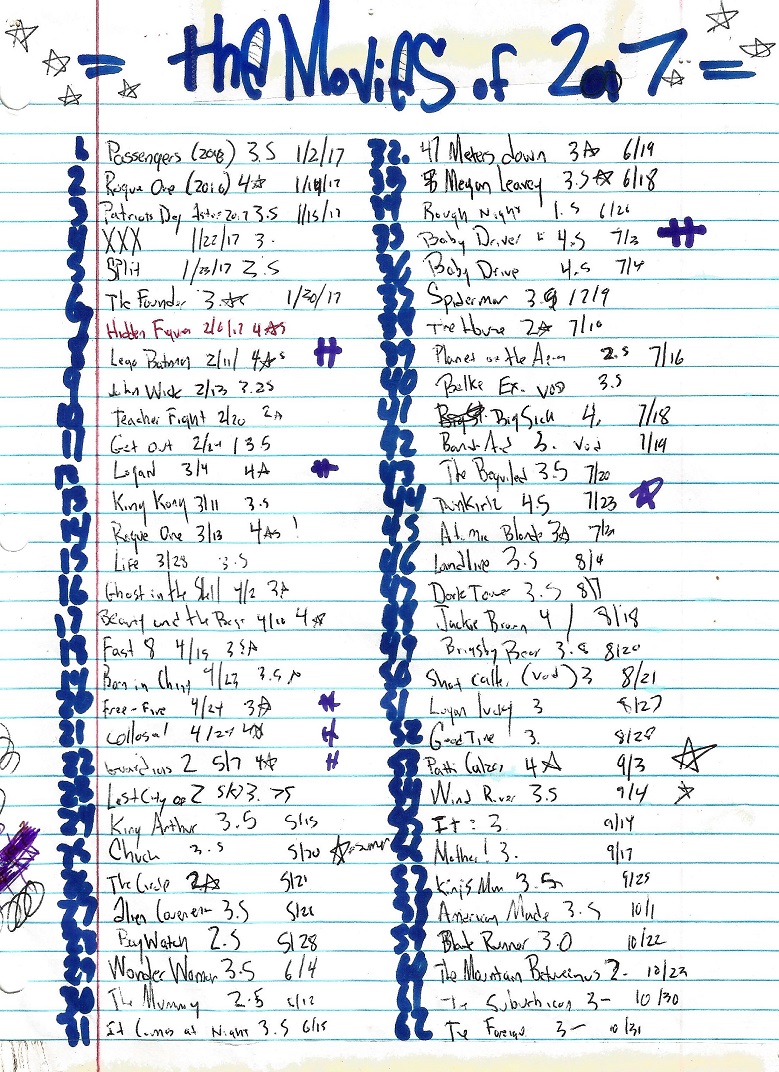 = the Movies of 2017 =
1 Passengers (2016) 3.5 1/2/17
2 Rogue One (2016) 4☆ 1/14/17
3 Patriots Day 3.5 1/15/17
4 XXX 1/22/17 3.
5 Split 1/23/17 2.5
6 The Founder 3.☆s 1/30/17
7 Hidden Figures 2/6/17 4☆s
8 Lego Batman 2/11/ 4☆s #
9 John Wick 2/13 3.25
10 Teacher Fight 2/20 2☆
11 Get out 2/24 3.5
12 Logan 3/4 4☆ #
13 King Kong 3/11 3.5
14 Rogue One 3/13 4☆s !
15 Life 3/28 3.5
16 Ghost in the Shell 4/2 3☆
17 Beauty and the Beast 4/10 4☆
18 Fast 8 4/15 3.5☆
19 Born in China 4/23 3.5☆
20 Free-Fire 4/24 3☆ #
21 Collosal 4/24 4☆ #
22 Guardians 2 5/7 4☆ #
23 Lost City of Z 3.75
24 King Arthur 3.5 5/15
25 Chuck 3.5 5/20 ☆
26 The Circle 2☆ 5/21
27 Alien Covenant 3.5 5/26
28 BayWatch 2.5 5/28
29 Wonder Woman 3.5 6/4
30 The Mummy 2.5 6/12
31 It Comes at Night 3.5 6/15
32. 47 Meters down 3☆ 6/19
33 Megan Leavey 3.5☆ 6/18
34 Rough Night 1.5 6/26
35 Baby Driver 4.5 7/3 #
36 Baby Drive 4.5 7/4
37 Spiderman 3.9 7/9
38 The House 2☆ 7/10
39 Planet of the Apes 2.5 7/16
40 Belko Ex. VOD 3.5
41 Big Sick 4. 7/18
42 Band Aid 3. Vod 7/19
43 The Beguiled 3.5 7/20
44 Dunkirk 4.5 7/23 ☆
45 Atomic Blonde 3☆
46 Landline 3.5 8/4
47 Dark Tower 3.5 8/7
48 Jackie Brown 4 / 8/18
49 Brigsby Bear 3.8 8/20
50 Shot Caller (vod) 3 8/21
51 Logan lucky 3 8/27
52 Good Time 3. 8/28
53 Patti Cakes 4☆ 9/3 ☆
54 Wind River 3.5 9/4 ☆
55 It : 3 9/14
56 Mother! 3. 9/17
57 Kings Man 3.5 9/25
58 American Made 3.5 10/1
59 Blade Runner 3.0 10/22
60 The Mountain Between us 2- 10/23
61 The Suburbicon 3- 10/30
62 The Foreign 3- 10/31